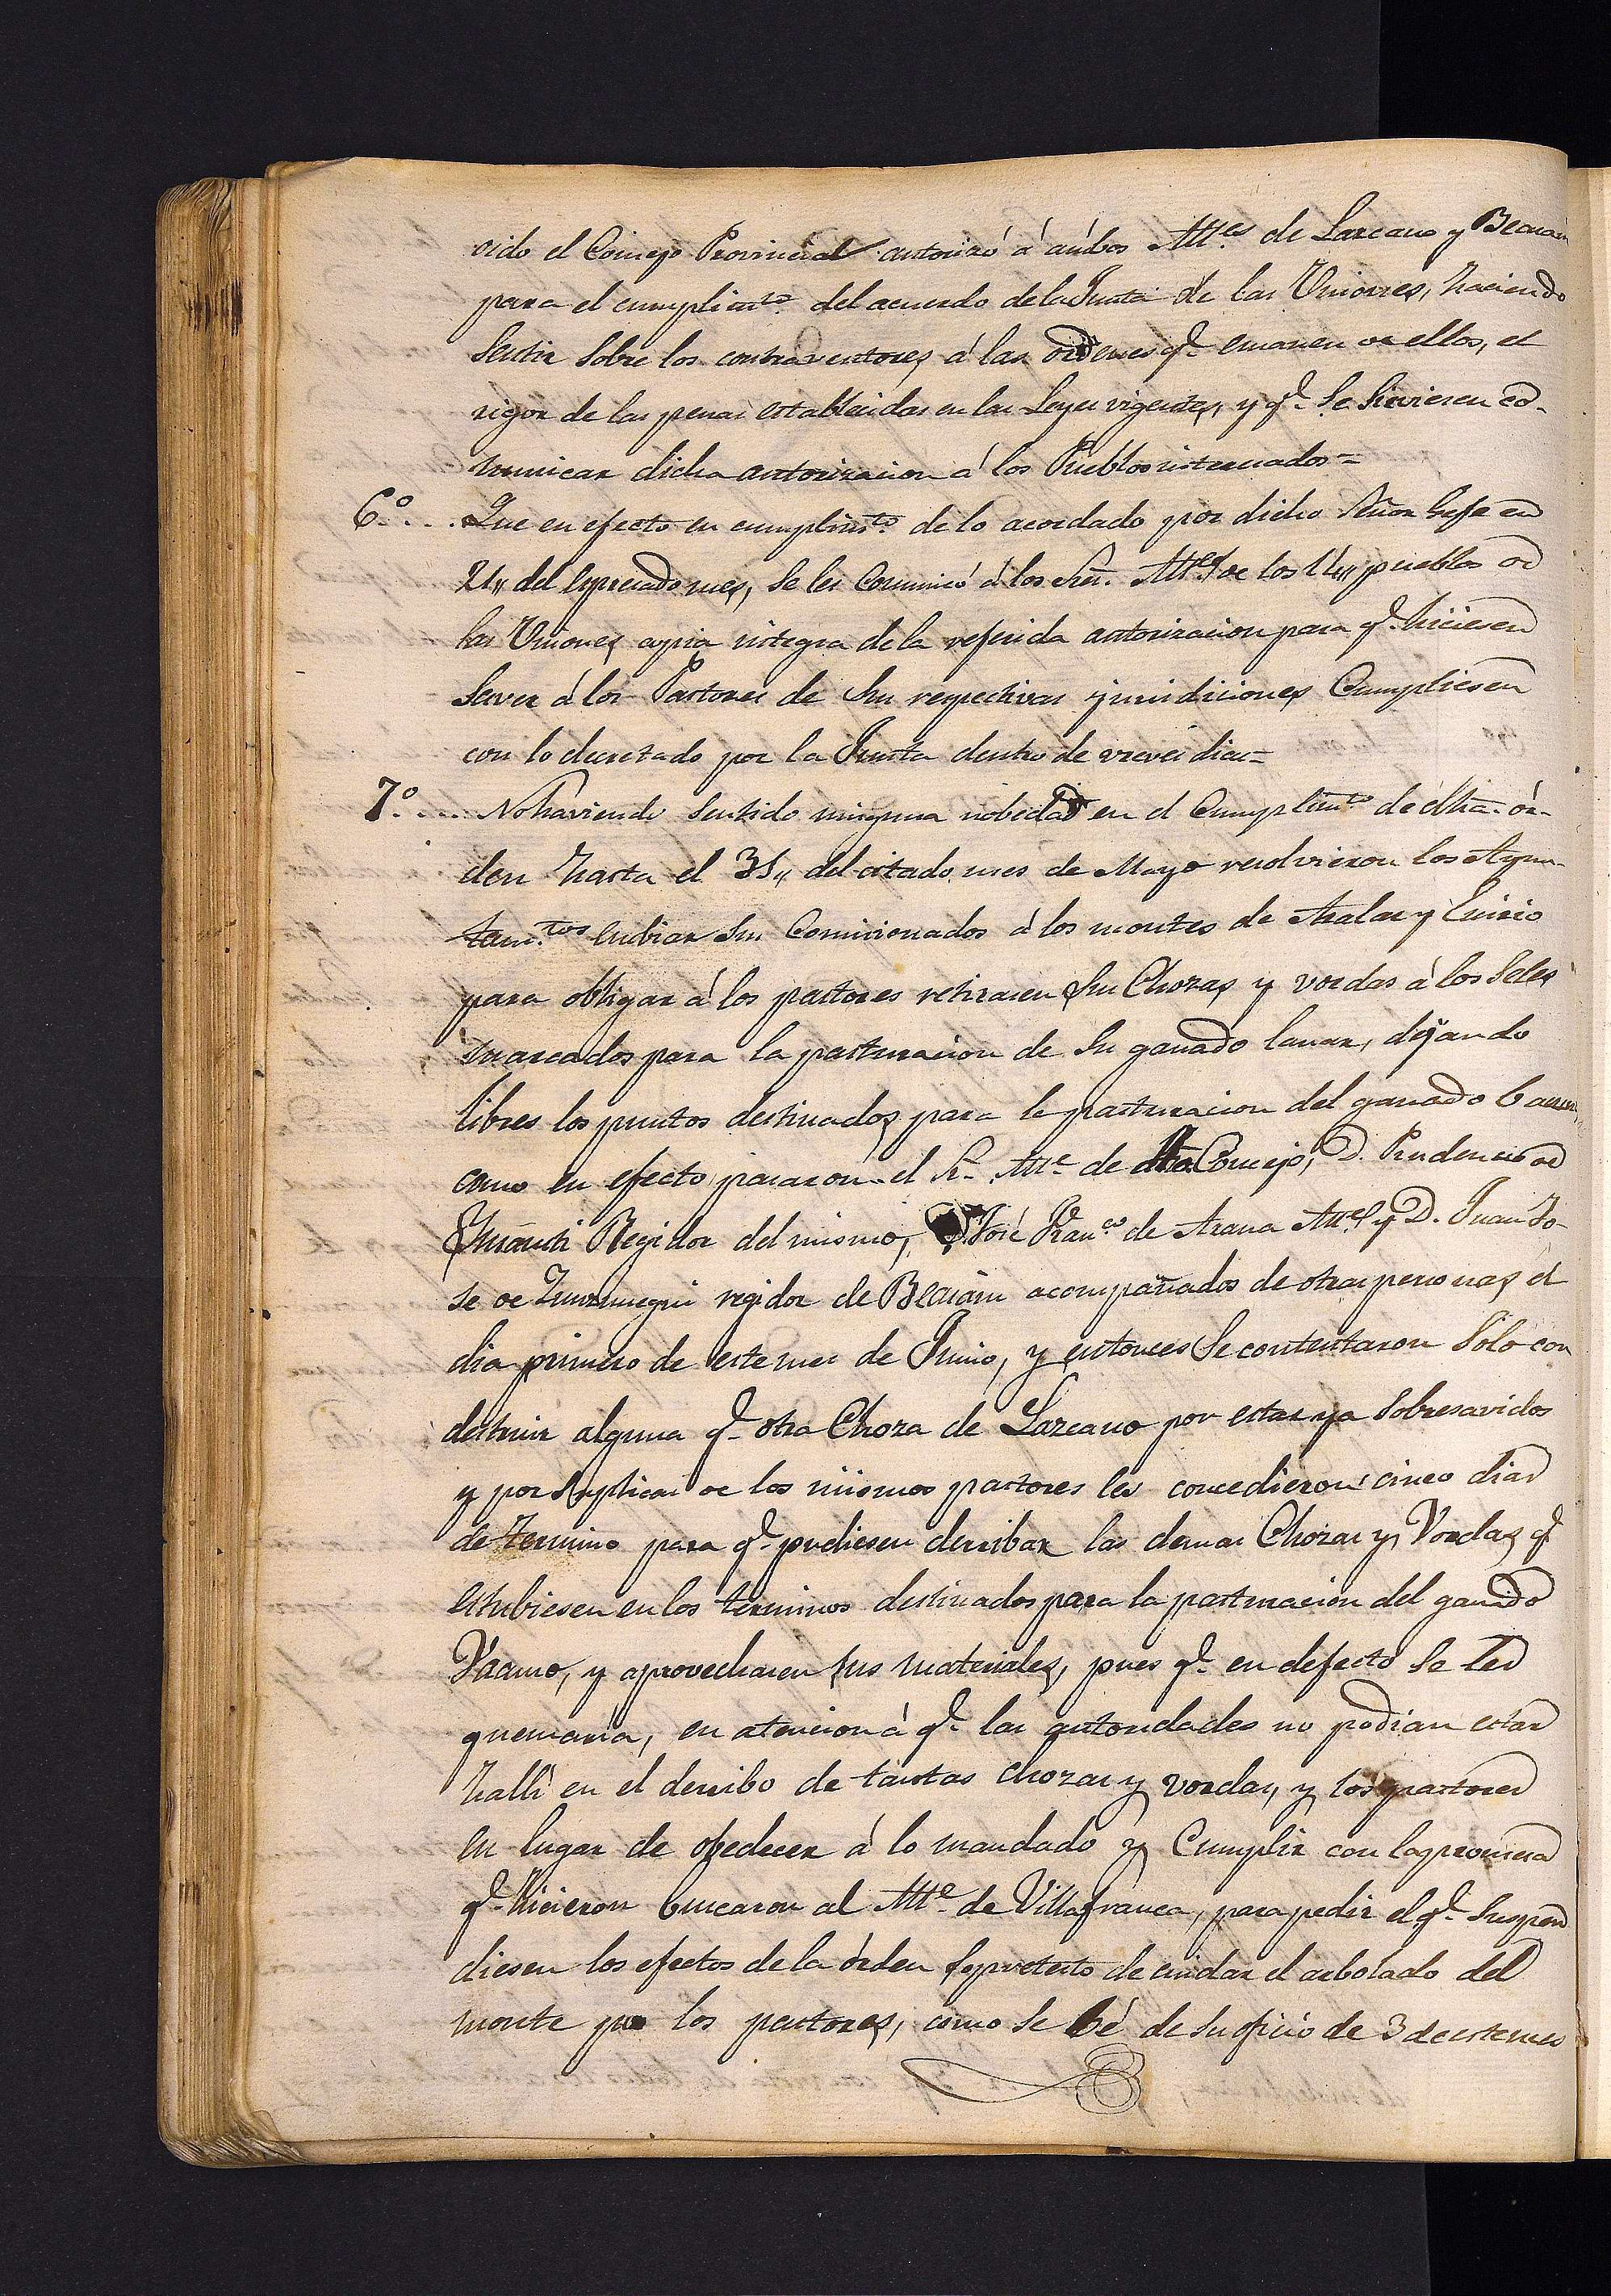 cido el Consejo Provincial autorizó á ambos Alt.es de Lazcano y Beasain
para el cumplim.to del acuerdo de la Junta de las Uniones, haciendo
sentir sobre los contraventores á las ordenes q.e emanen de ellos, el
rigor de las penas establecidas en las Leyes vigentes, y q.e se sirviesen co-
municar dicha autorizacion á los Pueblos interesados=
6.º... Que en efecto en cumplim.to de lo acordado por dicho Señor Gefe en
21,, del espresado mes, se les comunicó á los Señ. Alt.es de los 14,, pueblos de
las Uniones copia integra de la referida autorizacion para q.e hiciesen
saver á los Pastores de sus respectivas jurisdiciones cumpliesen
con lo decretado por la Junta dentro de breves dias=
7.º.... No haviendo sentido ninguna nobedad en el cumplim.to de dha. ór-
den hasta el 31,, del citado mes de Mayo resolvieron los Ayun-
tam.tos embiar sus Comisionados á los montes de Aralar y Enirio
para obligar á los pastores retirasen sus Chozas y vordas á los Seles
marcados para la pasturacion de su ganado lanar, dejando
libres los puntos destinados para la pasturacion del ganado bacuno,
como en efecto pasaron el Sr. Alt.e de dho. Concejo, D. Prudencio de
Regidor del mismo, D. José Fran.co de Arana Alt.e y D. Juan Jo-
se de regidor de Beasain acompañados de otras personas el
dia primero de este mes de Junio, y entonces se contentaron solo con
destruir alguna q.e otra Choza de Lazcano por estar ya sobresavidos
y por suplicas de los mismos pastores les concedieron cinco dias
de termino para q.e pudiesen derribar las demas Chozas y Vordas q.e
estubiesen en los terminos destinados para la pasturacion del ganado
Vacuno, y aprovechasen sus materiales, pues q.e en defecto se les
quemaria, en atencion á q.e las autoridades no podian estar
halli en el derribo de tantas chozas y vordas, y los pastores
en lugar de obedecer á lo mandado y cumplir con la promesa
q.e hicieron buscaron al Alt.e de Villafranca, para pedir el q.e suspen
diesen los efectos de la órden so pretesto de cuidar el arbolado del
monte por los pastores, como se bé de su oficio de 3 de este mes